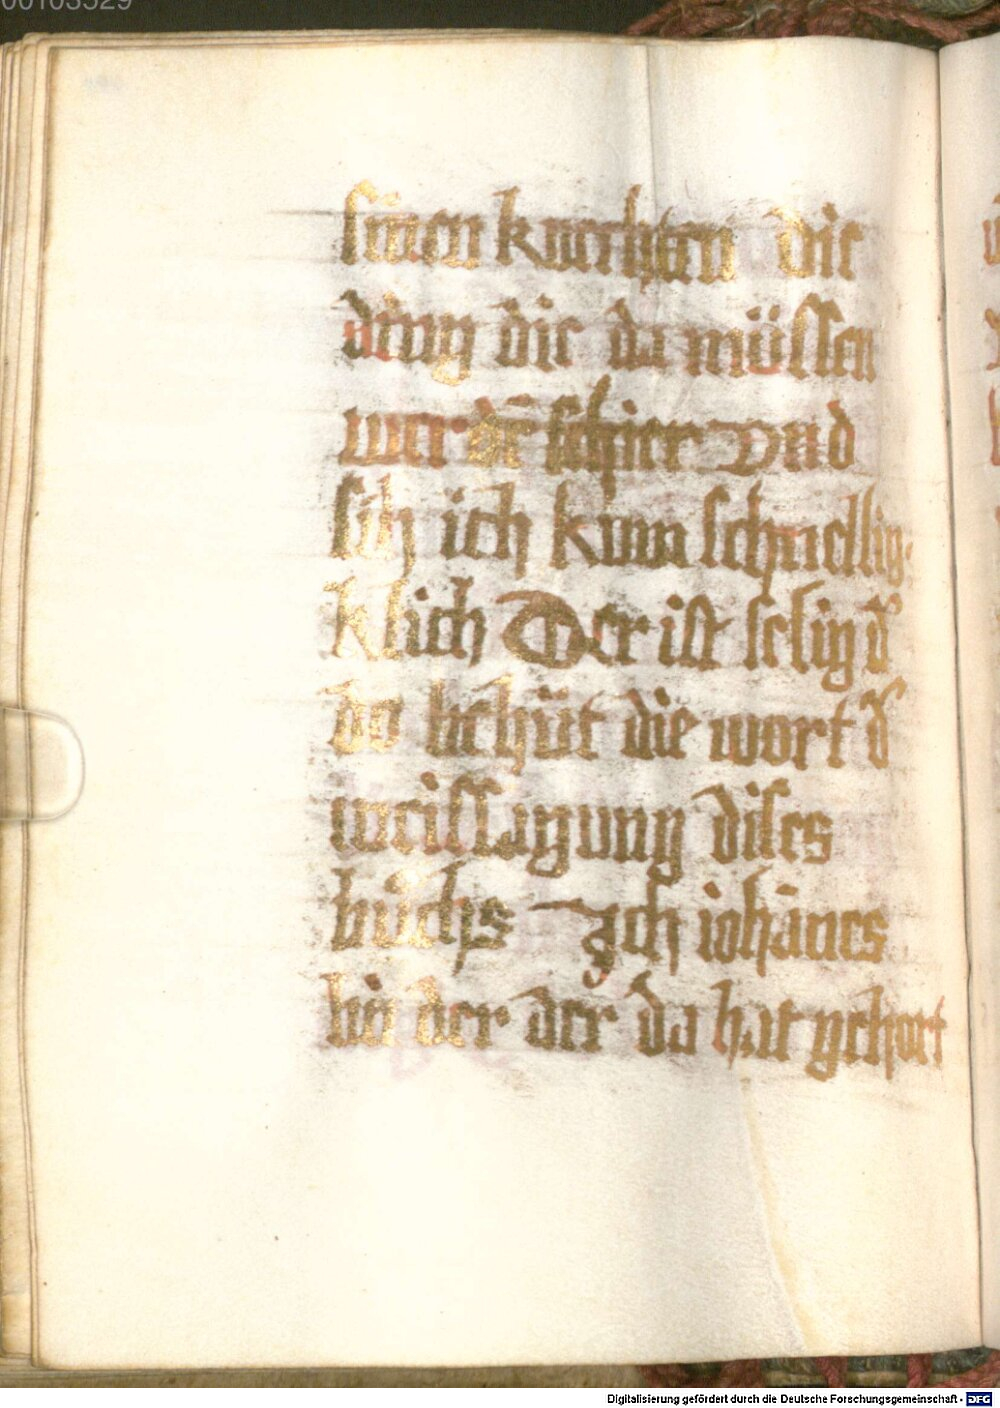 sinen knechten die
ding die da müssen
werdē schier Vnd
sih ich kum schnellig-
klich Der ist selig d̕
do behüt die wort d̕
weissagung dises
bůchs Ich iohānes
bin der der da hat gehort
Digitalisierung gefördert durch die Deutsche Forschungsgemeinschaft - DFG